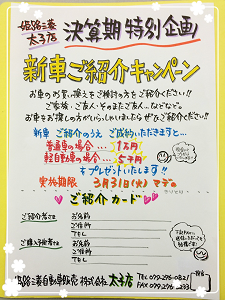 姫路三菱
太子店
決算期特別企画
新車ご紹介キャンペーン
お車のお買い換えをご検討の方をご紹介ください!!
ご家族・ご友人・そのまたご友人…などなど。
お車をお探しの方がいらっしゃいましたらぜひご紹介ください!!
新車 ご紹介のうえ ご成約いただきますと…
普通車の場合… 1万円
軽自動車の場合… 5千円
をプレゼントいたします!!
実施期限 3月31日(火)まで。
ご紹介カード
ご紹介者さま
お名前
ご住所
TEL
ご購入予定者さま
お名前
ご住所
TEL
姫路三菱自動車販売株式会社 太子店
TEL 079-276-0232